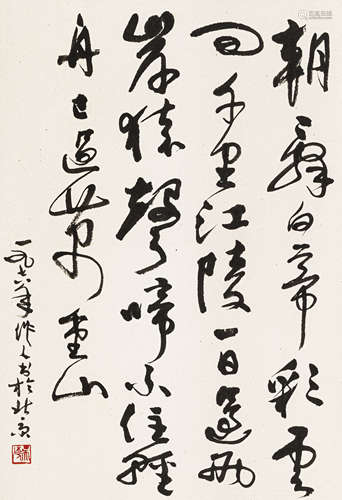 朝辭白帝彩雲
間千里江陵一日還兩
岸猿聲啼不住輕
舟已過萬重山
一九七八年作人書於北京